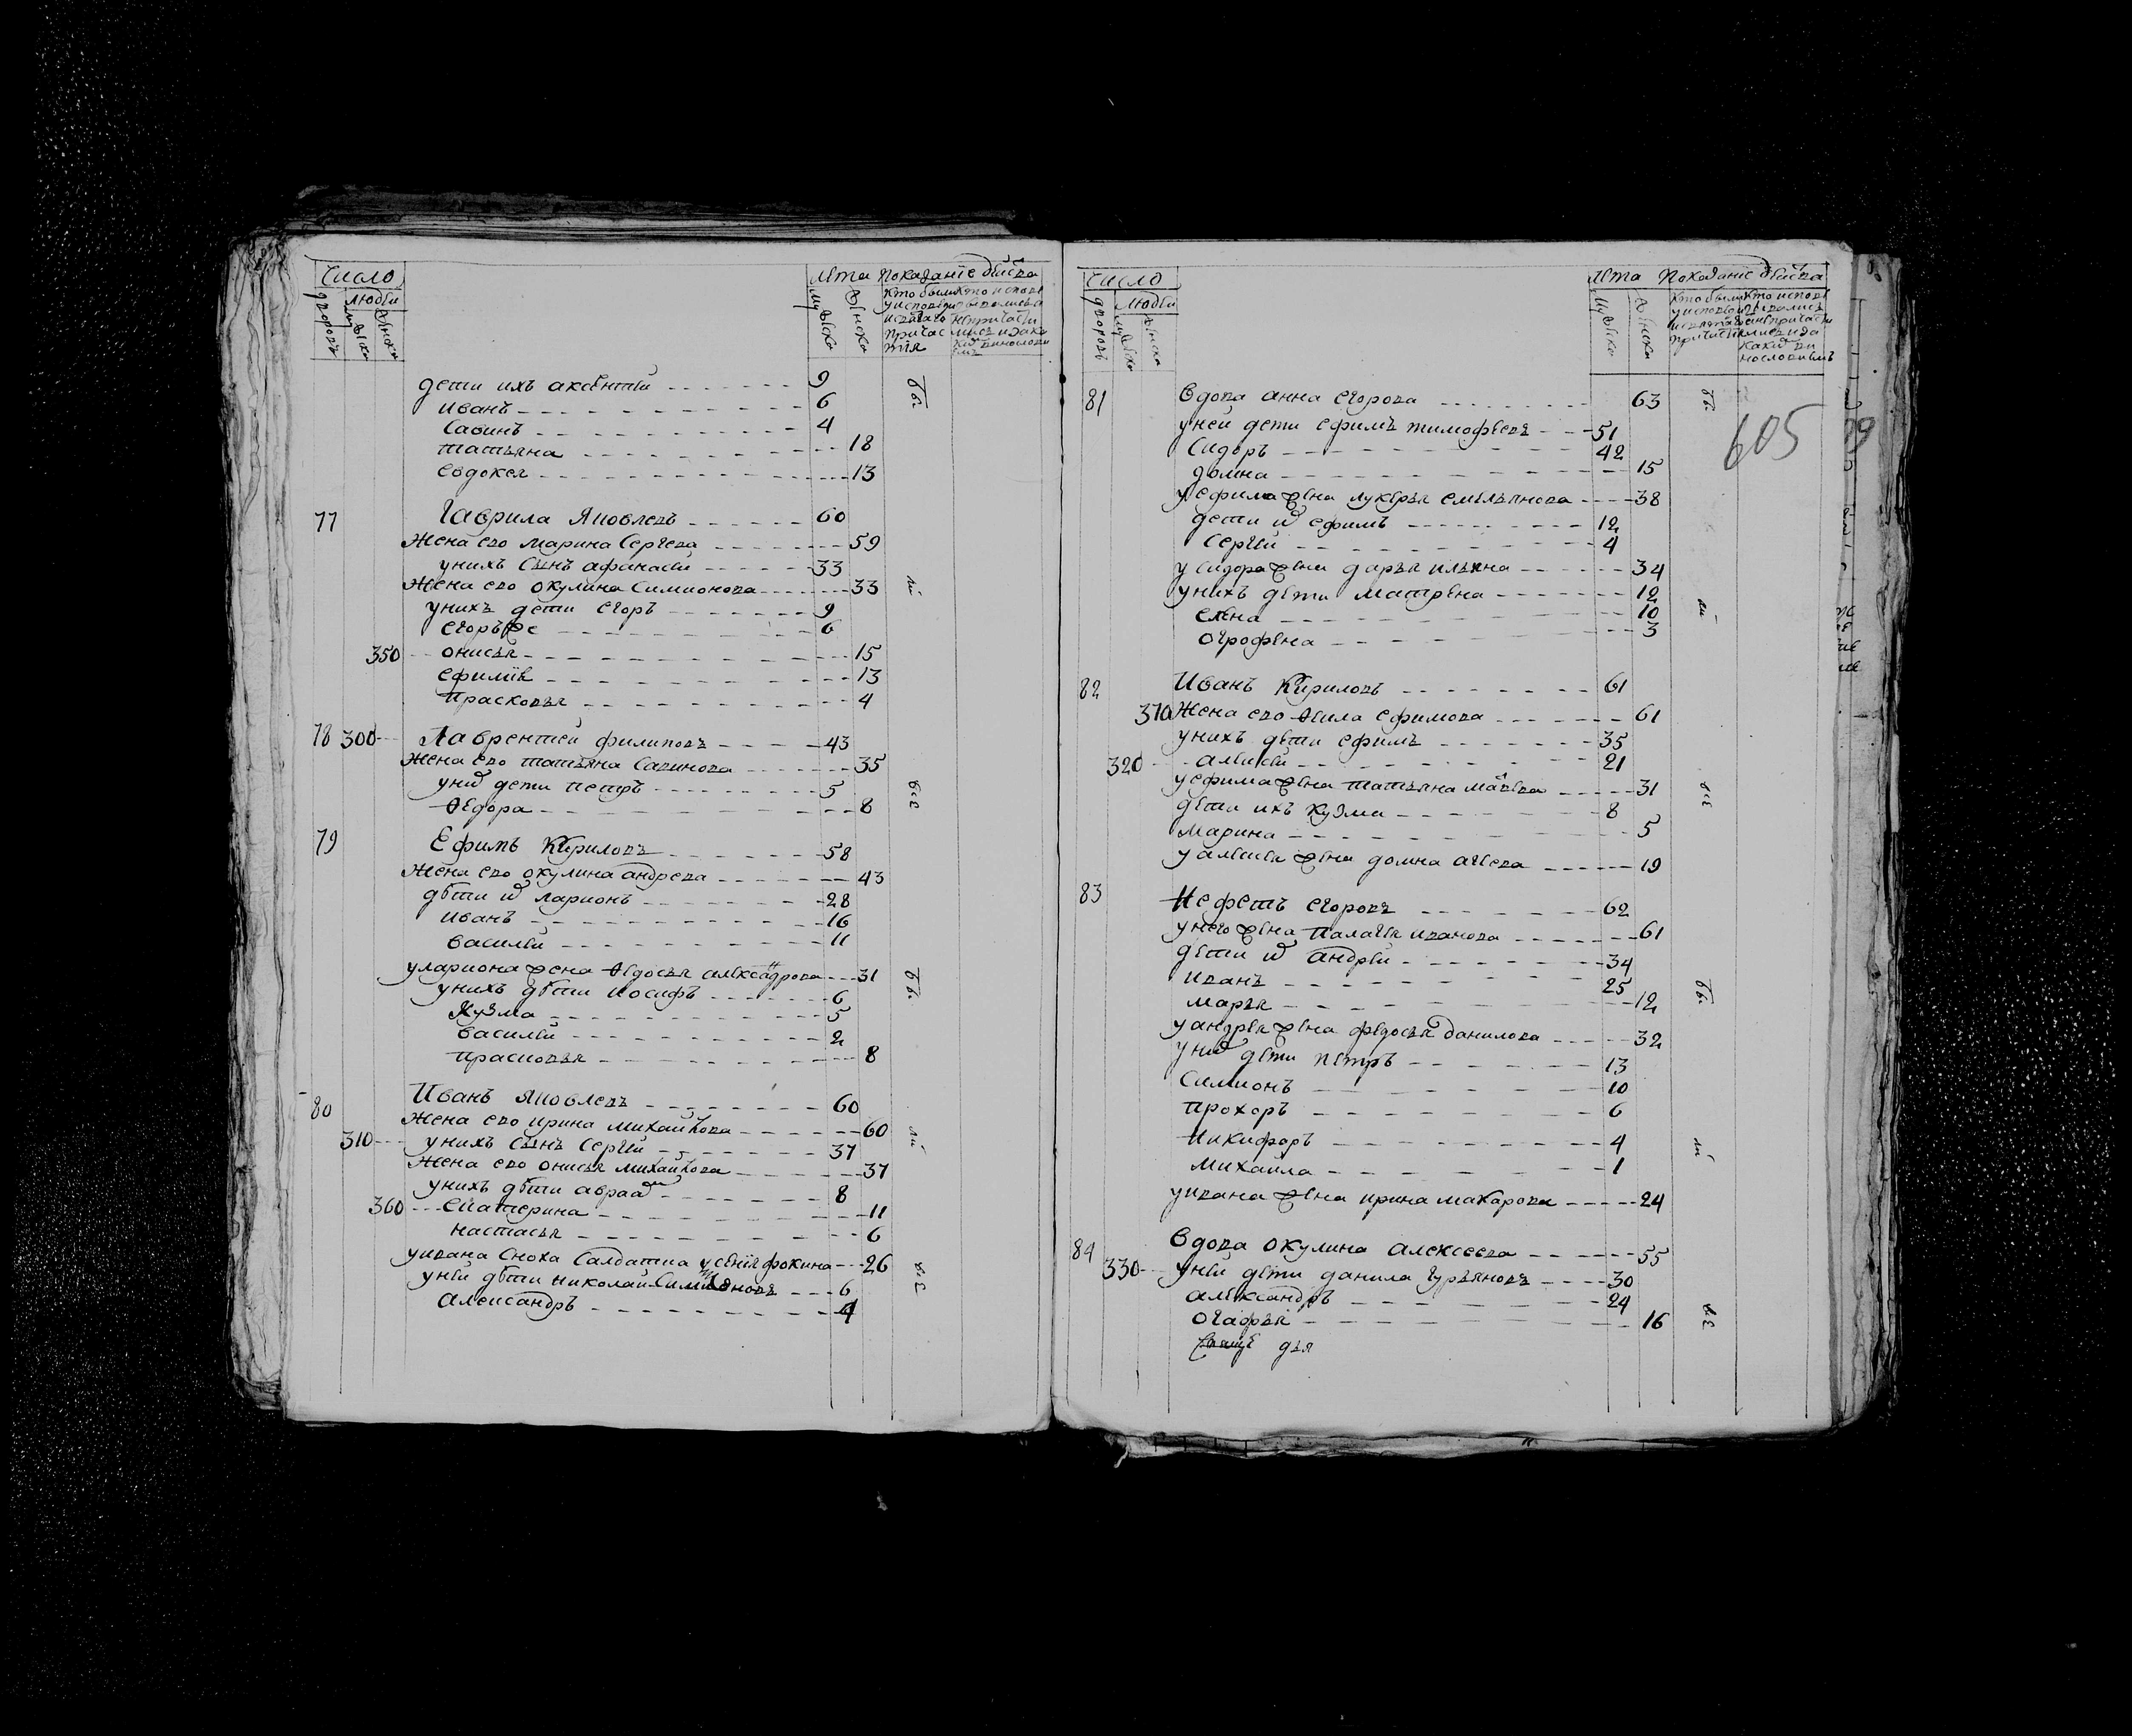 Число Лѣта Показанiе дѣйства
дворовъ людей
мужеска женска мужеска женска
дети ихъ аксентей 9
иванъ 6
савинъ 4
татьяна 18
евдокея 13
77 Гаврила Яковлевъ 60
Жена ево марина Сергева 59
унихъ сынъ афанасей 33
Жена ево окулина Симионова 33
унихъ дети егоръ 9
егоръ же 6
350 онисья 15
ефимія 13
прасковья 4
78 300 Лаврентей филиповъ 43
Жена ево татьяна Савинова 35
уних дети петръ 5
Ѳедора 8
79 Ефимъ Кириловъ 58
Жена ево окулина андрева 43
дѣти их ларионъ 28
иванъ 16
василей 11
улариона жена Ѳедосья александрова 31
унихъ дѣти иосифъ 6
Кузма 5
василей 2
прасковья 8
80 Иванъ Яковлевъ 60
Жена ево ирина михайлова 60
310 унихъ сынъ Сергей 37
Жена ево онисья михайлова 37
унихъ дѣти авраам 8
360 Екатерина 11
настасья 6
уивана сноха салдатка усенія фокина 26
уней дѣти николай Симионовъ 6
александръ 4
Число Лѣта Показанiе дѣйства
дворовъ людей
мужеска женска мужеска женска
605
81 вдова анна егорова 63
уней дети ефимъ тимофеевъ 51
Сидоръ 42
домна 15
уефима жена лукерья емельянова 38
дети их ефимъ 12
Сергей 4
усидора жена дарья ильина 34
унихъ дети матрена 12
елена 10
огрофена 3
82 Иванъ Кириловъ 61
370 Жена ево Ѳекла ефимова 61
унихъ дети ефимъ 35
320 алексей 21
уефима жена татьяна мавева 31
дети ихъ кузма 8
марина 5
уалексея жена домна агеева 19
83 Нефетъ егоровъ 62
унего жена палагея иванова 61
дети их андрей 34
иванъ 25
марья 12
уандрея жена федосья данилова 32
уних дети петръ 13
Симионъ 10
прохоръ 6
никифоръ 4
михайла 1
уивана жена ирина макарова 24
84 вдова окулина алексеева 55
330 уней дети данила гурьяновъ 30
александръ 24
огафья 16